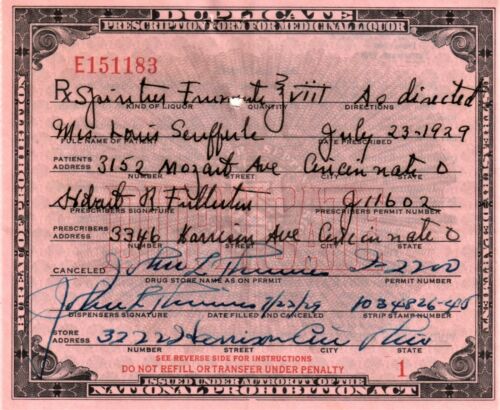 DUPLICATE
PRESCRIPTION FORM FOR MEDICINAL LIQUOR
E151183
Rx Spiritus Frumenti ℥ viii As directed
KIND OF LIQUOR QUANTITY DIRECTIONS
Mrs. Louis July 23-1929
FULL NAME OF PATIENT DATE PRESCRIBED
PATIENTS ADDRESS 3152 Mozart Ave Cincinnate O
NUMBER STREET CITY STATE
Hobart R Fullerton J111602
PRESCRIBERS SIGNATURE PRESCRIBERS PERMIT NUMBER
PRESCRIBERS ADDRESS 3346 Harrison Ave Cincinnate O
NUMBER STREET CITY STATE
CANCELED John L 2200
DRUG STORE NAME AS ON PERMIT PERMIT NUMBER
John L 7/23/29 1034826
DISPENSERS SIGNATURE DATE FILLED AND CANCELED STRIP STAMP NUMBER
STORE ADDRESS 3222 Harrison Cin Ohio
NUMBER STREET CITY STATE
SEE REVERSE SIDE FOR INSTRUCTIONS
DO NOT REFILL OR TRANSFER UNDER PENALTY 1
ISSUED UNDER AUTHORITY OF THE
NATIONAL PROHIBITION ACT
BUREAU OF PROHIBITION